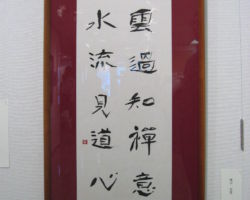 雲過知禪意
水流見道心